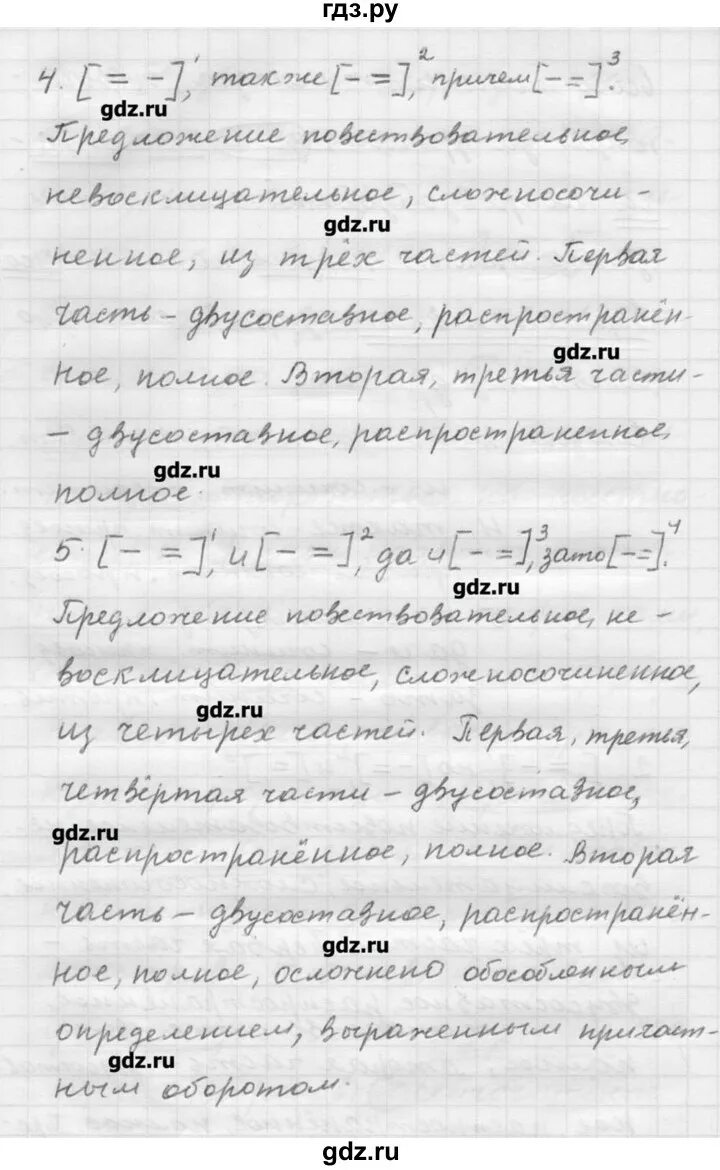 гдз.ру
4. [= -]¹, также [- =]², причем [- =]³.
gdz.ru
Предложение повествовательное,
невосклицательное, сложносочи-
gdz.ru
ненное, из трёх частей. Первая
часть – двусоставное, распространён-
gdz.ru
ное, полное. Вторая, третья части-
– двусоставное, распространенное,
gdz.ru
полное.
5. [- =]¹, и [- =]², да и [- =]³, зато [- =]⁴.
gdz.ru
Предложение повествовательное, не-
восклицательное, сложносочиненное,
gdz.ru
из четырех частей. Первая, третья,
четвёртая части – двусоставное,
gdz.ru
распространённое, полное. Вторая
часть – двусоставное, распространён-
gdz.ru
ное, полное, осложнено обособленным
определением, выраженным причаст-
gdz.ru
ным оборотом.
gdz.ru